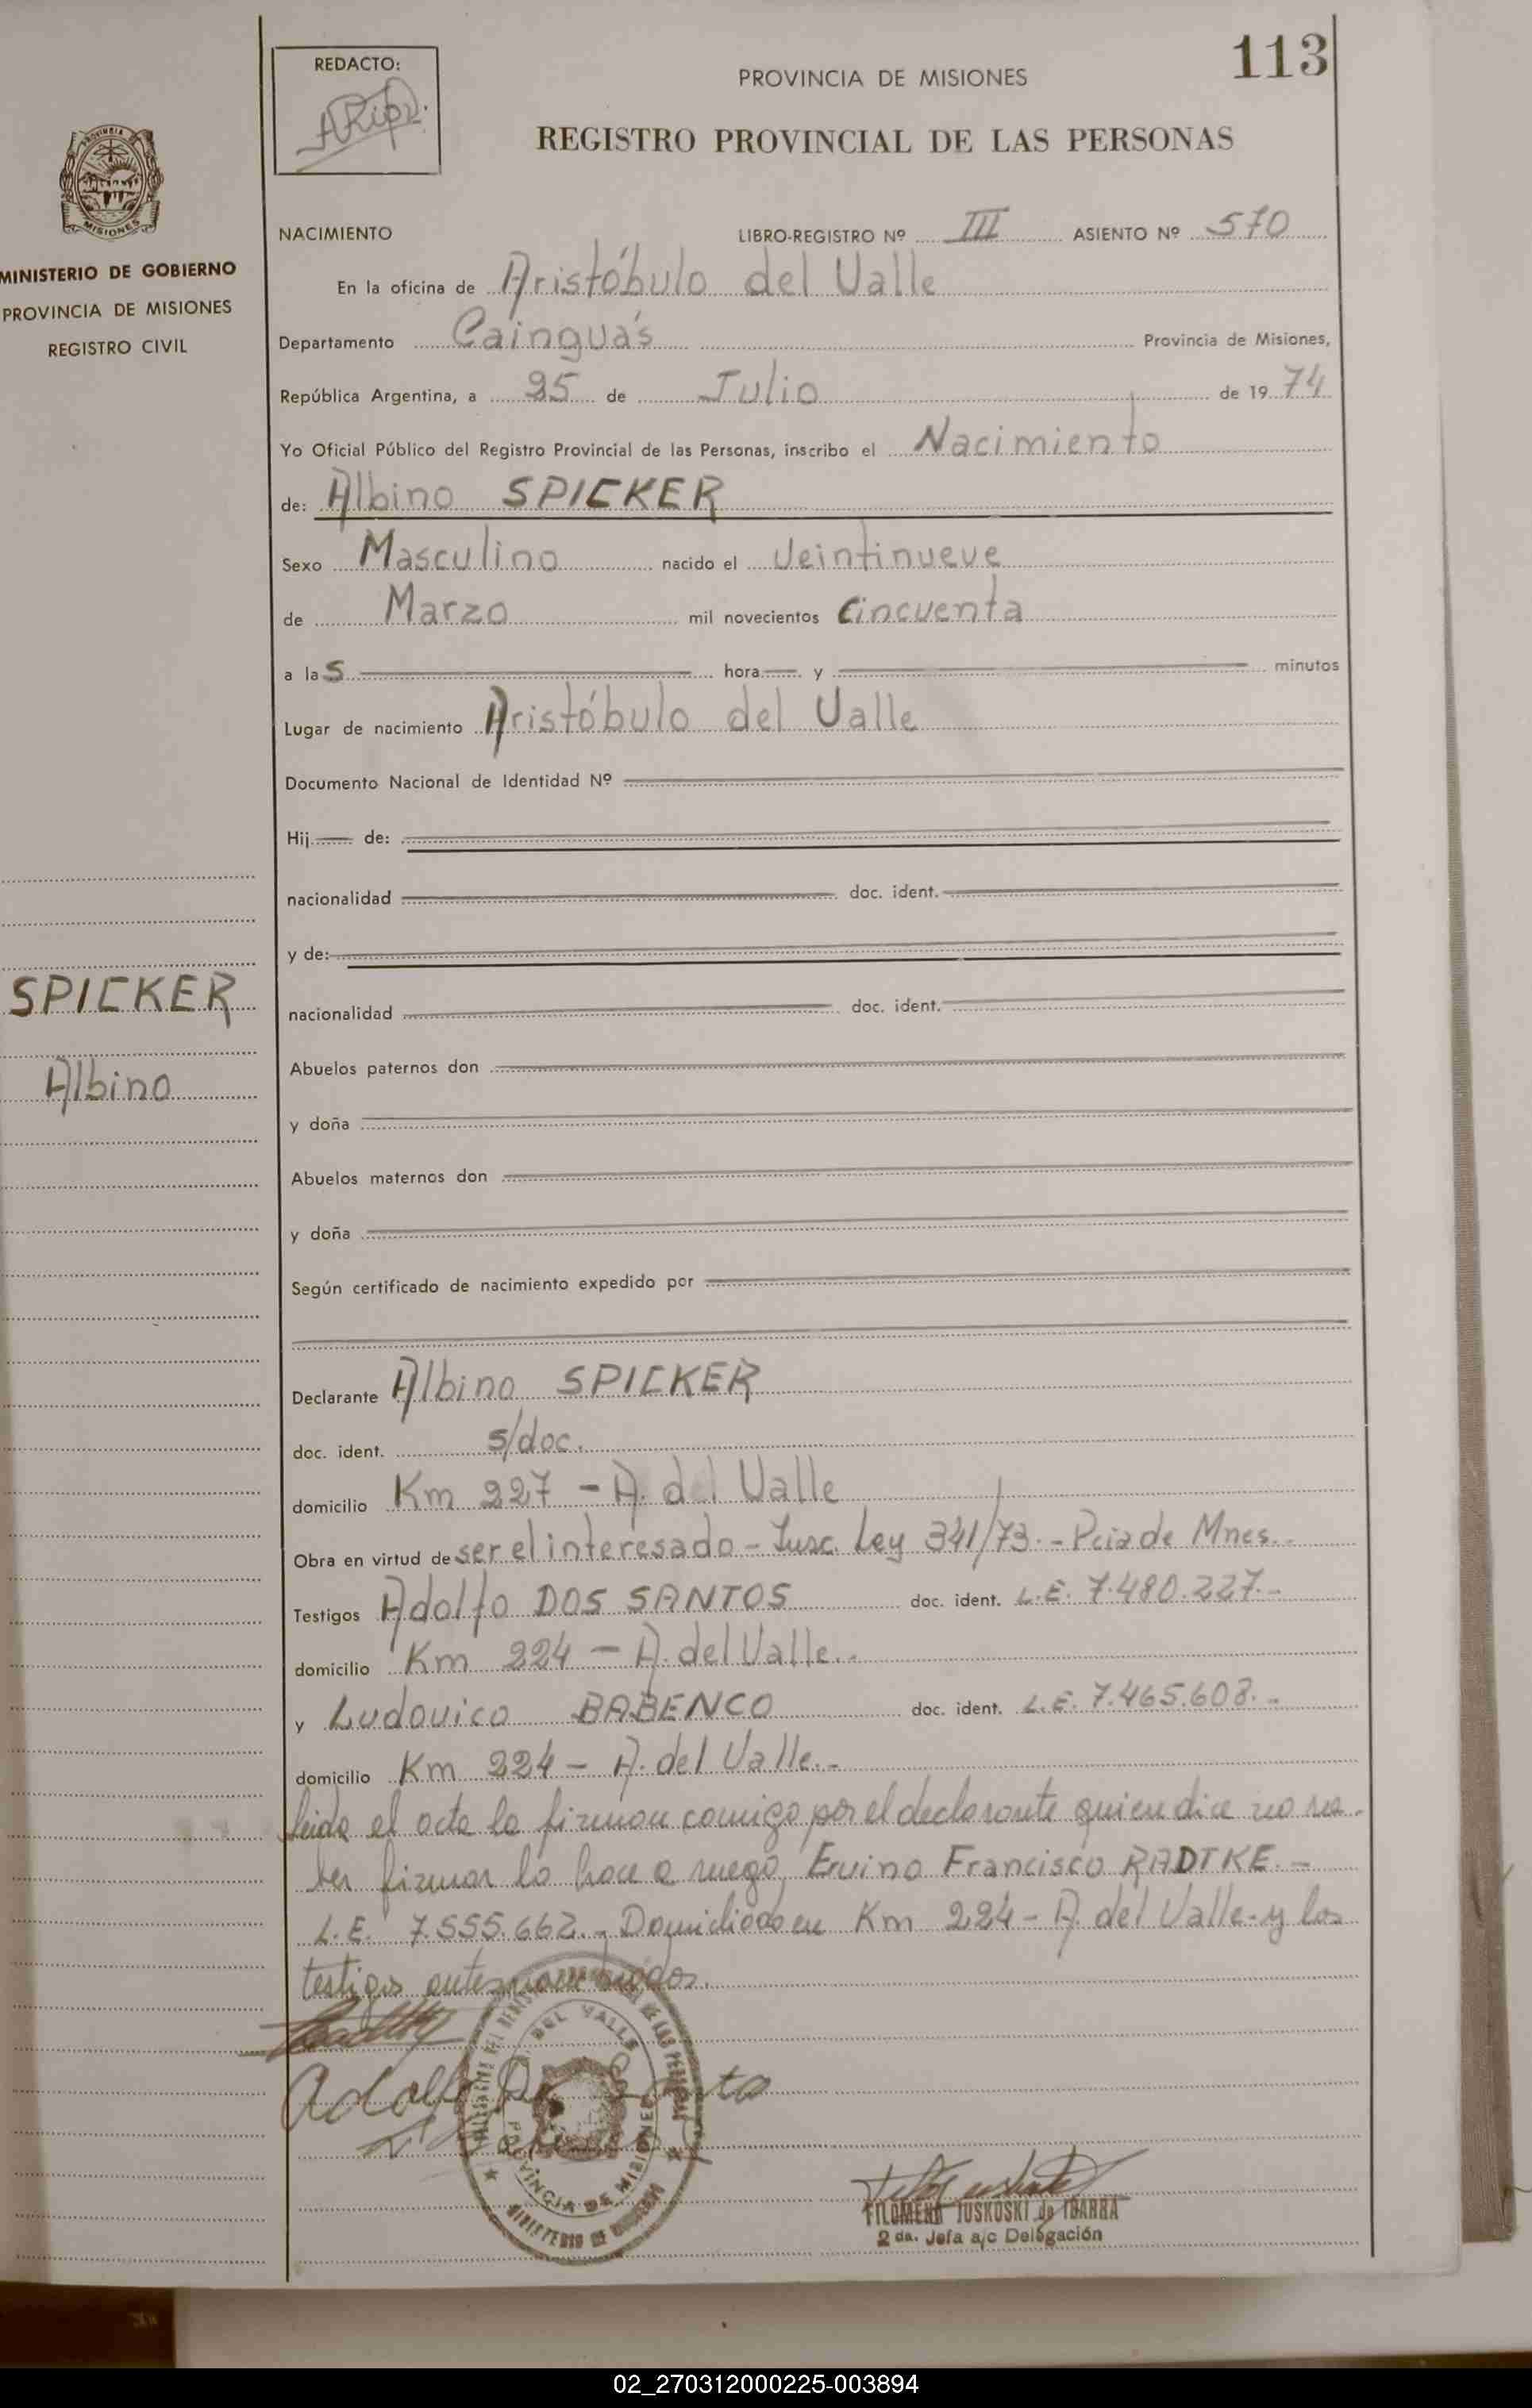 113
REDACTO:
PROVINCIA DE MISIONES
REGISTRO PROVINCIAL DE LAS PERSONAS
PROVINCIA
MISIONES
MINISTERIO DE GOBIERNO
PROVINCIA DE MISIONES
REGISTRO CIVIL
NACIMIENTO LIBRO-REGISTRO Nº III ASIENTO Nº 570
En la oficina de Aristóbulo del Valle
Departamento Cainguás Provincia de Misiones,
República Argentina, a 25 de Julio de 1974
Yo Oficial Público del Registro Provincial de las Personas, inscribo el Nacimiento
de: Albino SPICKER
Sexo Masculino nacido el Veintinueve
de Marzo mil novecientos Cincuenta
a la S hora y minutos
Lugar de nacimiento Aristóbulo del Valle
Documento Nacional de Identidad Nº
Hij de:
nacionalidad doc. ident.
y de:
SPICKER
nacionalidad doc. ident.
Albino
Abuelos paternos don
y doña
Abuelos maternos don
y doña
Según certificado de nacimiento expedido por
Declarante Albino SPICKER
doc. ident. s/doc.
domicilio Km 227 - A. del Valle
Obra en virtud de ser el interesado - Insc. Ley 341/73. - Pcia de Mnes.
Testigos Adolfo DOS SANTOS doc. ident. L.E. 7.480.227.-
domicilio Km 224 - A. del Valle.-
y Ludovico BABENCO doc. ident. L.E. 7.465.608.-
domicilio Km 224 - A. del Valle.-
Leida el acta la firman comigo por el declarante quien dice no sa-
ber firmar lo hace a ruego, Ervino Francisco RADTKE.-
L.E. 7.555.662.- Domiciliado en Km 224 - A. del Valle - y los
testigos antes nombrados.
DEL VALLE
PROVINCIA DE MISIONES
Adolfo
FILOMENA IUSKOSKI de IBARRA
2 da. Jefa a/c Delegación
02_270312000225-003894